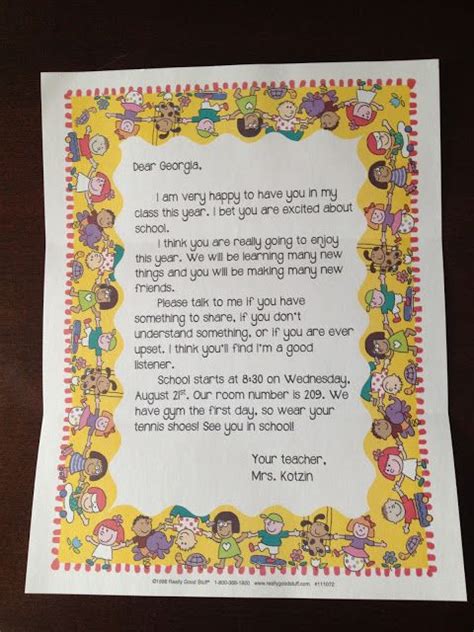 Dear Georgia,
I am very happy to have you in my
class this year. I bet you are excited about
school.
I think you are really going to enjoy
this year. We will be learning many new
things and you will be making many new
friends.
Please talk to me if you have
something to share, if you don't
understand something, or if you are ever
upset. I think you'll find I'm a good
listener.
School starts at 8:30 on Wednesday,
August 21st. Our room number is 209. We
have gym the first day, so wear your
tennis shoes! See you in school!
Your teacher,
Mrs. Kotzin
©1998 Really Good Stuff® 1-800-366-1920 www.reallygoodstuff.com #111072